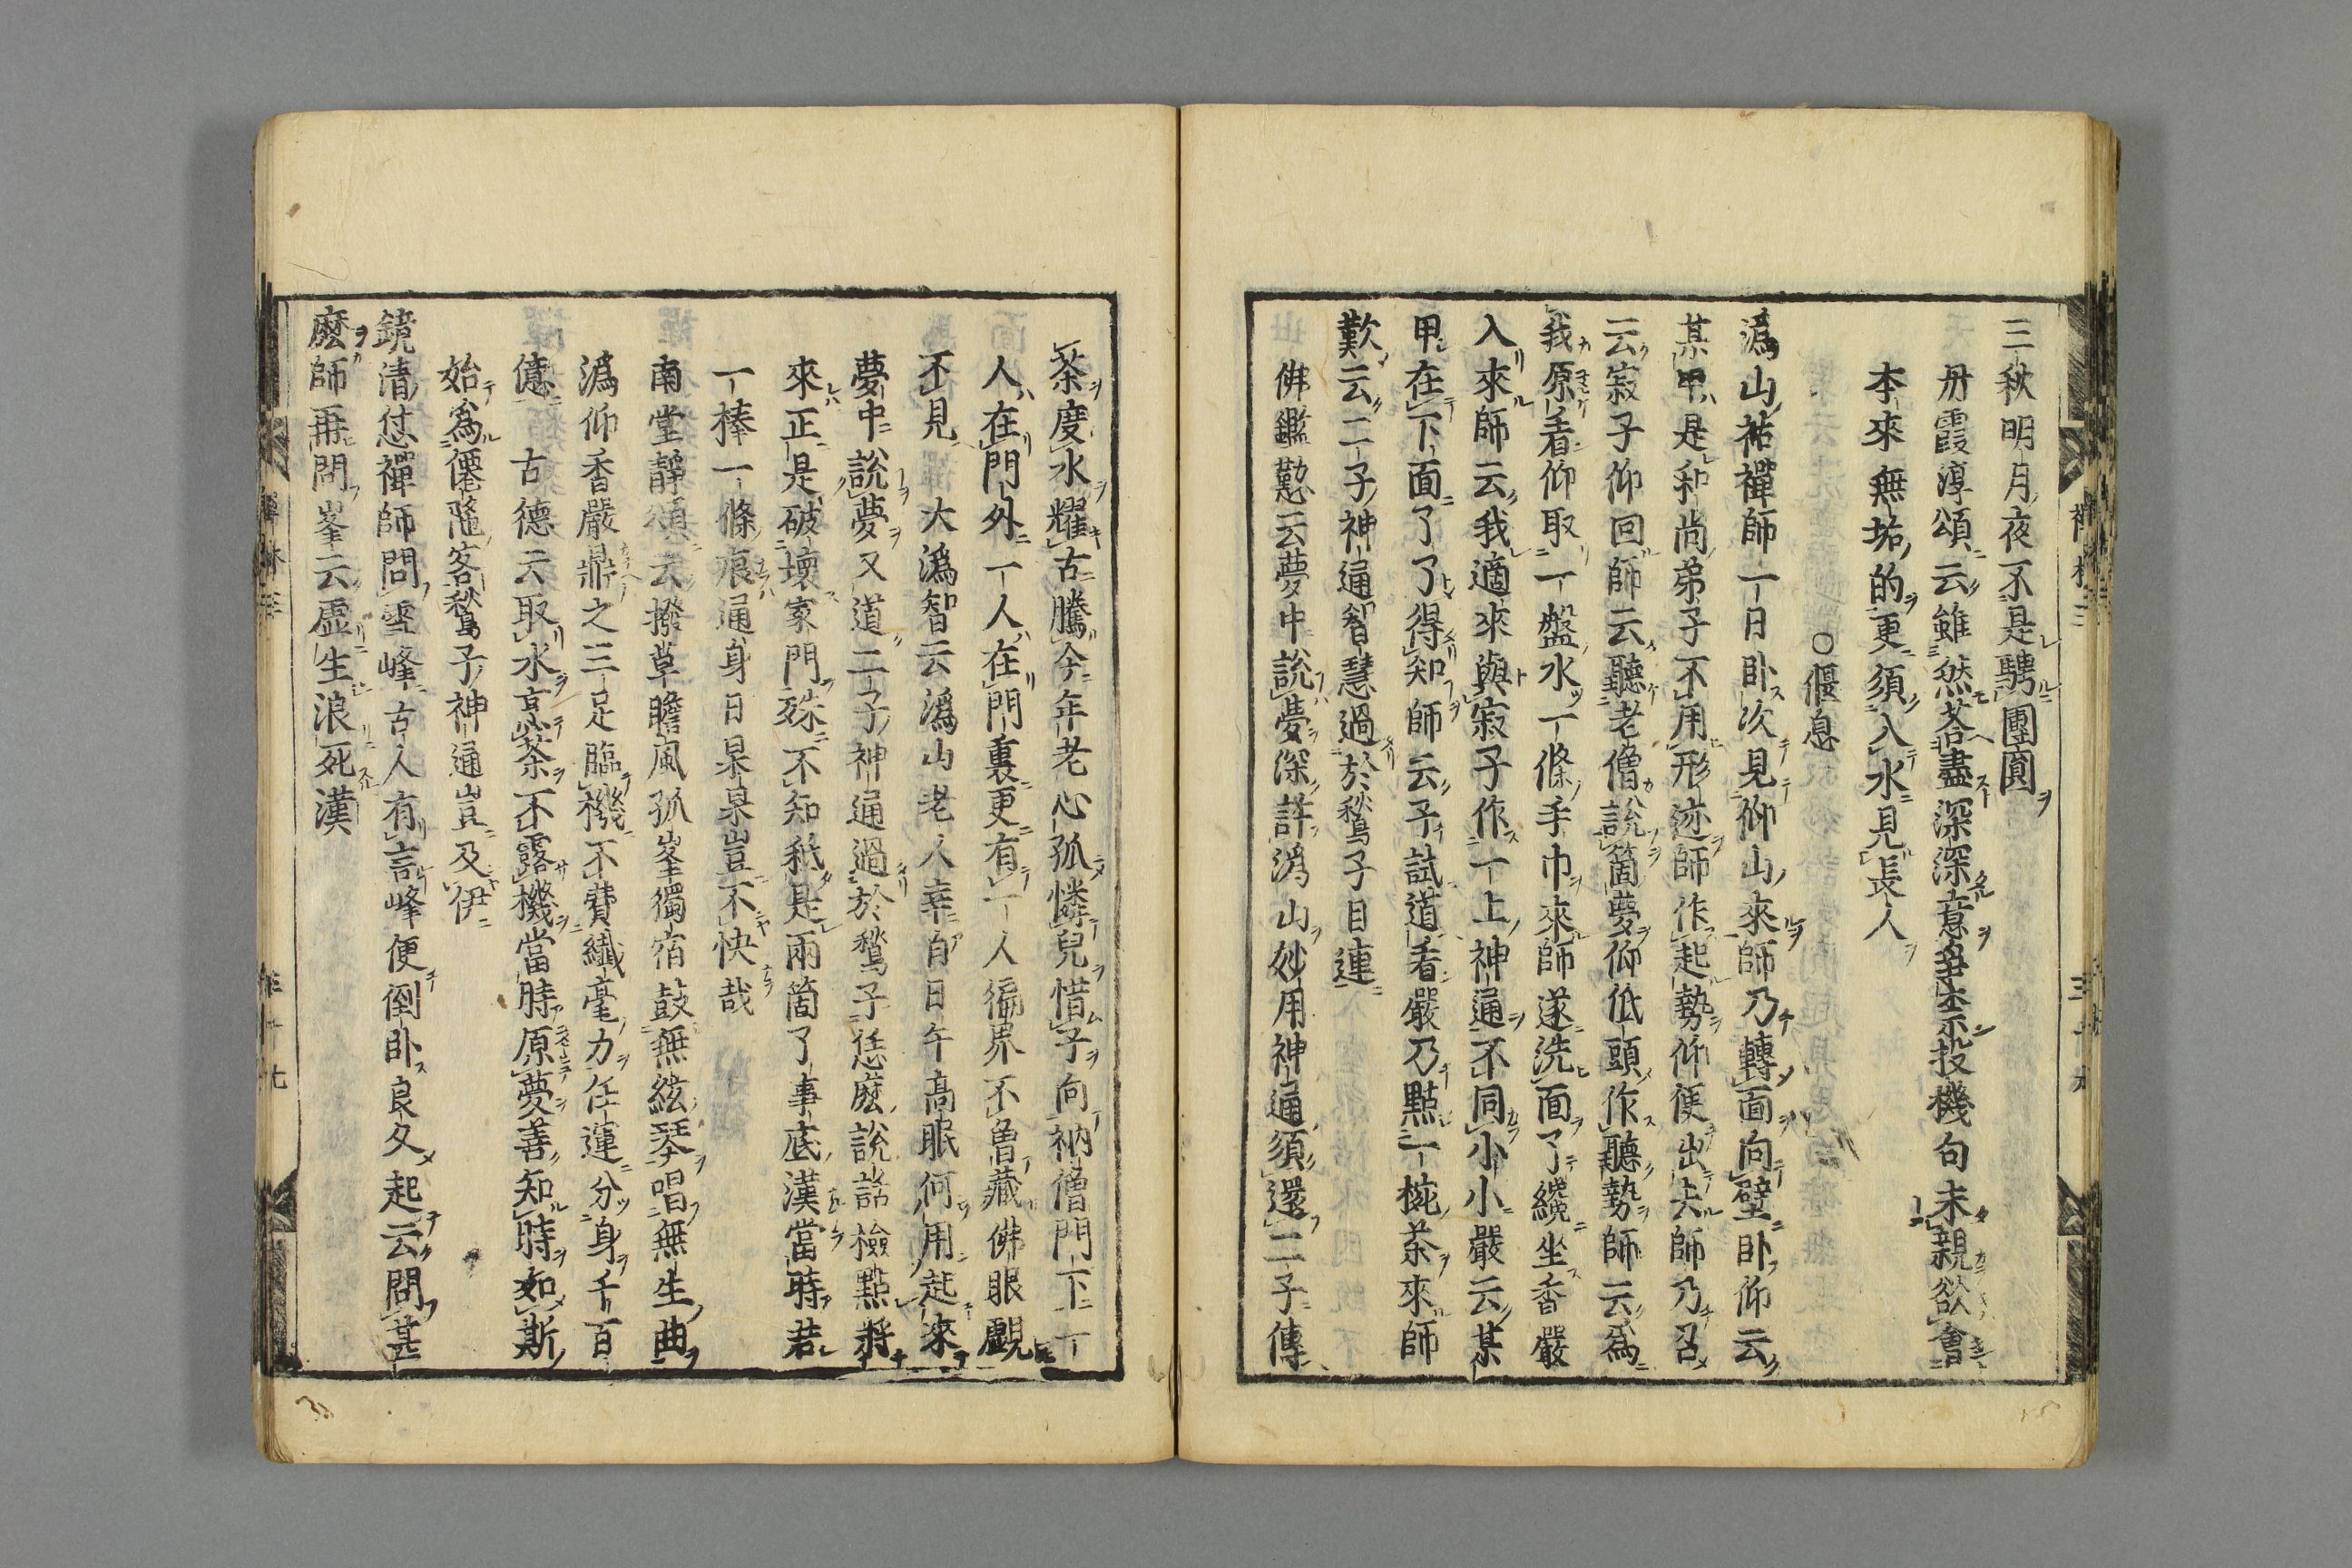 三秋明月夜不是騁團圓
丹霞淳頌云雖然荅盡深深意爭柰投機句未親欲會
本來無垢的更須入水見長人
○偃息
潙山祐禪師一日卧次見仰山來師乃轉面向壁卧仰云
某甲是和尚弟子不用形迹師作起勢仰便出去師乃召
云寂子仰回師云聽老僧說箇夢仰低頭作聽勢師云爲
我原看仰取一盤水一條手巾來師遂洗面了纔坐香嚴
入來師云我適來與寂子作一上神通不同小小嚴云某
甲在下面了了得知師云子試道看嚴乃點一椀茶來師
歎云二子神通智慧過於鶖子目連
佛鑑懃云夢中說夢深許潙山妙用神通須還二子傳
茶度水耀古騰今年老心孤憐兒惜子向衲僧門下一
人在門外一人在門裏更有一人徧界不曾藏佛眼覷
不見　大潙智云潙山老人幸自日午高眠何用起來
夢中說夢又道二子神通過於鶖子恁麽說話檢點將
來正是破壞家門殊不知秖是兩箇了事底漢當時若
一棒一條痕通身日杲杲豈不快哉
南堂靜頌云撥草瞻風孤峯獨宿鼓無絃琴唱無生曲
潙仰香嚴鼎之三足臨機不費纖毫力任運分身千百
億　古德云取水烹茶不露機當時原夢善知時如斯
始爲僊陁客鶖子神通豈及伊
鏡清怤禪師問雪峰古人有言峰便倒卧良久起云問甚
麽師再問峯云虛生浪死漢